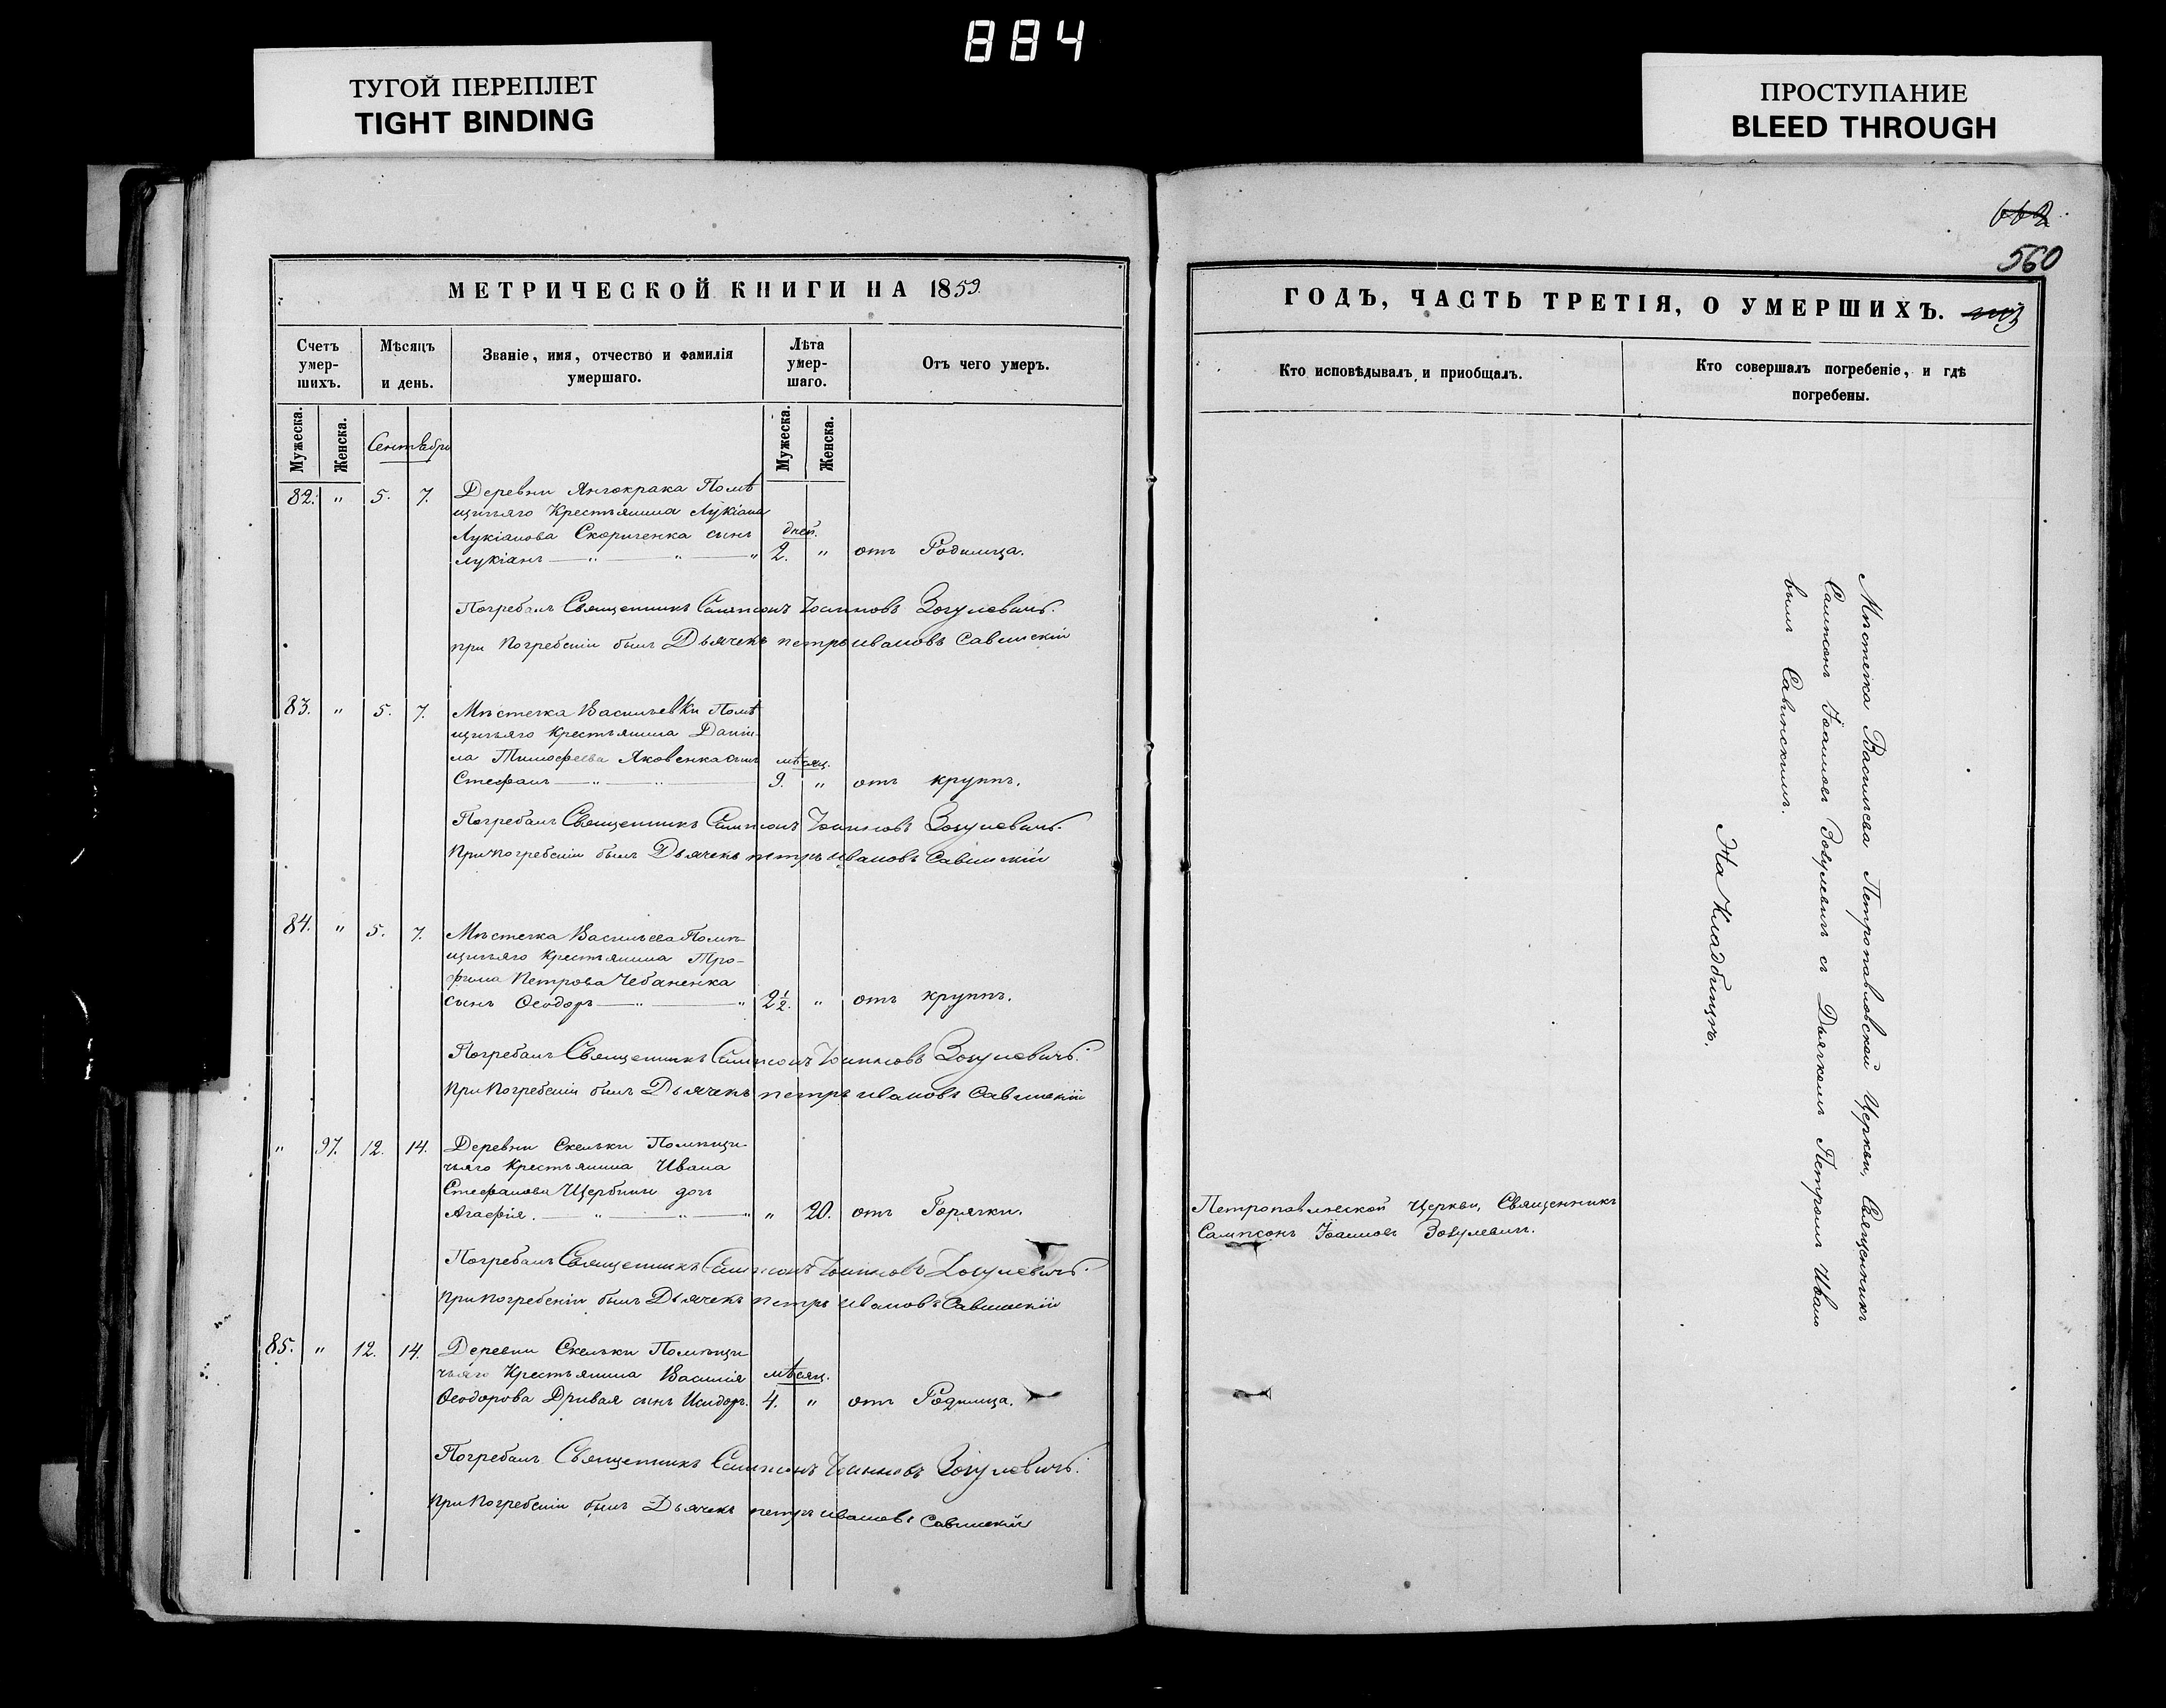 884
ТУГОЙ ПЕРЕПЛЕТ
TIGHT BINDING
ПРОСТУПАНИЕ
BLEED THROUGH
560
МЕТРИЧЕСКОЙ КНИГИ НА 1859
Счетъ умер-шихъ.
Мѣсяцъ и день.
Званіе, имя, отчество и фамилія умершаго.
Лѣта умер-шаго.
Отъ чего умеръ.
Мужеска.
Женска.
Сентябрь
Мужеска.
Женска.
82. " 5. 7. Деревни Янчокрака Помѣ
щичьяго Крестьянина Лукіана
Лукіанова Скориченка сынъ дней.
Лукіанъ — " — " — " 2. " отъ Родимца.
Погребалъ Священникъ Сампсонъ Іоанновъ Зозулевичъ.
при Погребеніи былъ Дьячекъ петръ ивановъ Савинскій
83. " 5. 7. Мѣстечка Васильевки Помѣ
щичьяго Крестьянина Даніи-
ла Тимофеева Яковенка сынъ мѣсяц.
Стефанъ — " — " — 9. " отъ крупъ.
Погребалъ Священникъ Сампсонъ Іоанновъ Зозулевичъ.
При погребеніи былъ Дьячекъ петръ ивановъ Савинскій
84. " 5. 7. Мѣстечка Васильева Помѣ-
щичьяго Крестьянина Тро-
фима Петрова Чебаненка
сынъ Ѳеодоръ — " — " 2½. " отъ крупъ.
Погребалъ Священникъ Сампсонъ Іоанновъ Зозулевичъ.
При Погребеніи былъ Дьячекъ петръ ивановъ Савинскій
" 97. 12. 14. Деревни Скельки Помѣщи-
чьяго Крестьянина Ивана
Стефанова Щербины дочь
Агафія. — " — " — " " 20. отъ Горячки.
Погребалъ Священникъ Сампсонъ Іоанновъ Зозулевичъ.
При погребеніи былъ Дьячекъ петръ ивановъ Савинскій
85. " 12. 14. Деревни Скельки Помѣщи
чьяго Крестьянина Василія мѣсяц.
Ѳеодорова Дривая сынъ Исидоръ. 4. " отъ Родимца.
Погребалъ Священникъ Сампсонъ Іоанновъ Зозулевичъ.
При Погребеніи былъ Дьячекъ петръ ивановъ Савинскій
ГОДЪ, ЧАСТЬ ТРЕТІЯ, О УМЕРШИХЪ.
Кто исповѣдывалъ и приобщалъ.
Кто совершалъ погребеніе, и гдѣ погребены.
Петропавловской Церкви, Священникъ
Сампсонъ Іоанновъ Зозулевичъ.
Мѣстечка Васильева Петропавловской Церкви, Священникъ
Сампсонъ Іоанновъ Зозулевичъ съ Дьячкомъ Петромъ Ивано
вымъ Савинскимъ.
На Кладбищѣ.